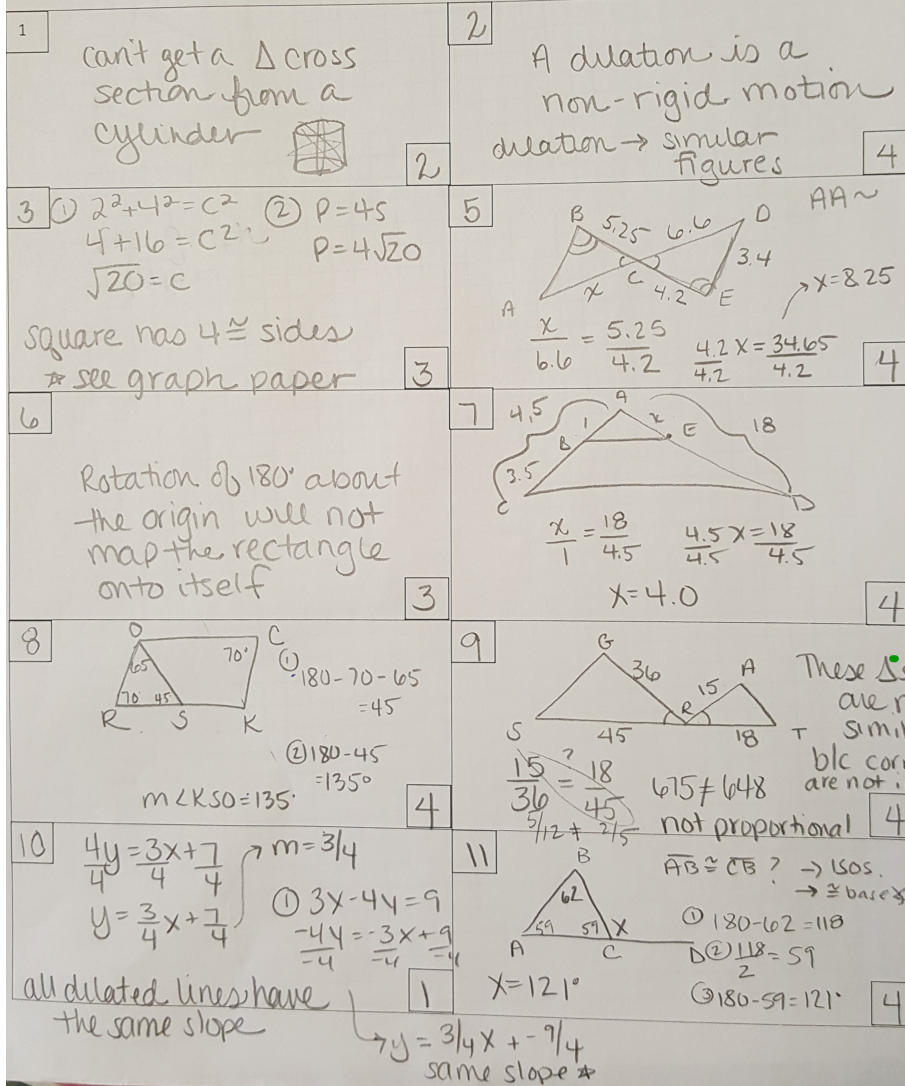 1
can't get a Δ cross
section from a
cylinder
2
2
A dilation is a
non-rigid motion
dilation → similar
figures
4
3
① 2²+4²=c²
4+16=c²
√20=c
② P=4S
P=4√20
square has 4 ≅ sides
☆ see graph paper
3
5
AA~
B 5.25 6.6 D
3.4
C
A x 4.2 E
x/6.6 = 5.25/4.2
4.2x/4.2 = 34.65/4.2
→ x=8.25
4
6
Rotation of 180° about
the origin will not
map the rectangle
onto itself
3
7
4.5 A 18
1 x
B E
3.5
C D
x/1 = 18/4.5
4.5x/4.5 = 18/4.5
x=4.0
4
8
O C
65 70°
70° 45
R S K
① 180-70-65
=45
② 180-45
=135°
m∠KSO=135°
4
9
G
36 A
15
R
S 45 18 T
These Δs
are
b/c
are not
15/36 ?= 18/45
5/12 ≠ 2/5
675≠648
not proportional
4
10
4y/4 = 3x/4 + 7/4
y = 3/4 x + 7/4
→ m=3/4
① 3x-4y=9
-4y/-4 = -3x/-4 + 9/-4
all dilated lines have
the same slope
1
→ y = 3/4 x + -9/4
same slope ☆
11
B
62
59 59 x
A C D
AB ≅ CB ? → isos.
→ ≅ base ∠s
① 180-62=118
② 118/2 = 59
③ 180-59=121°
x=121°
4